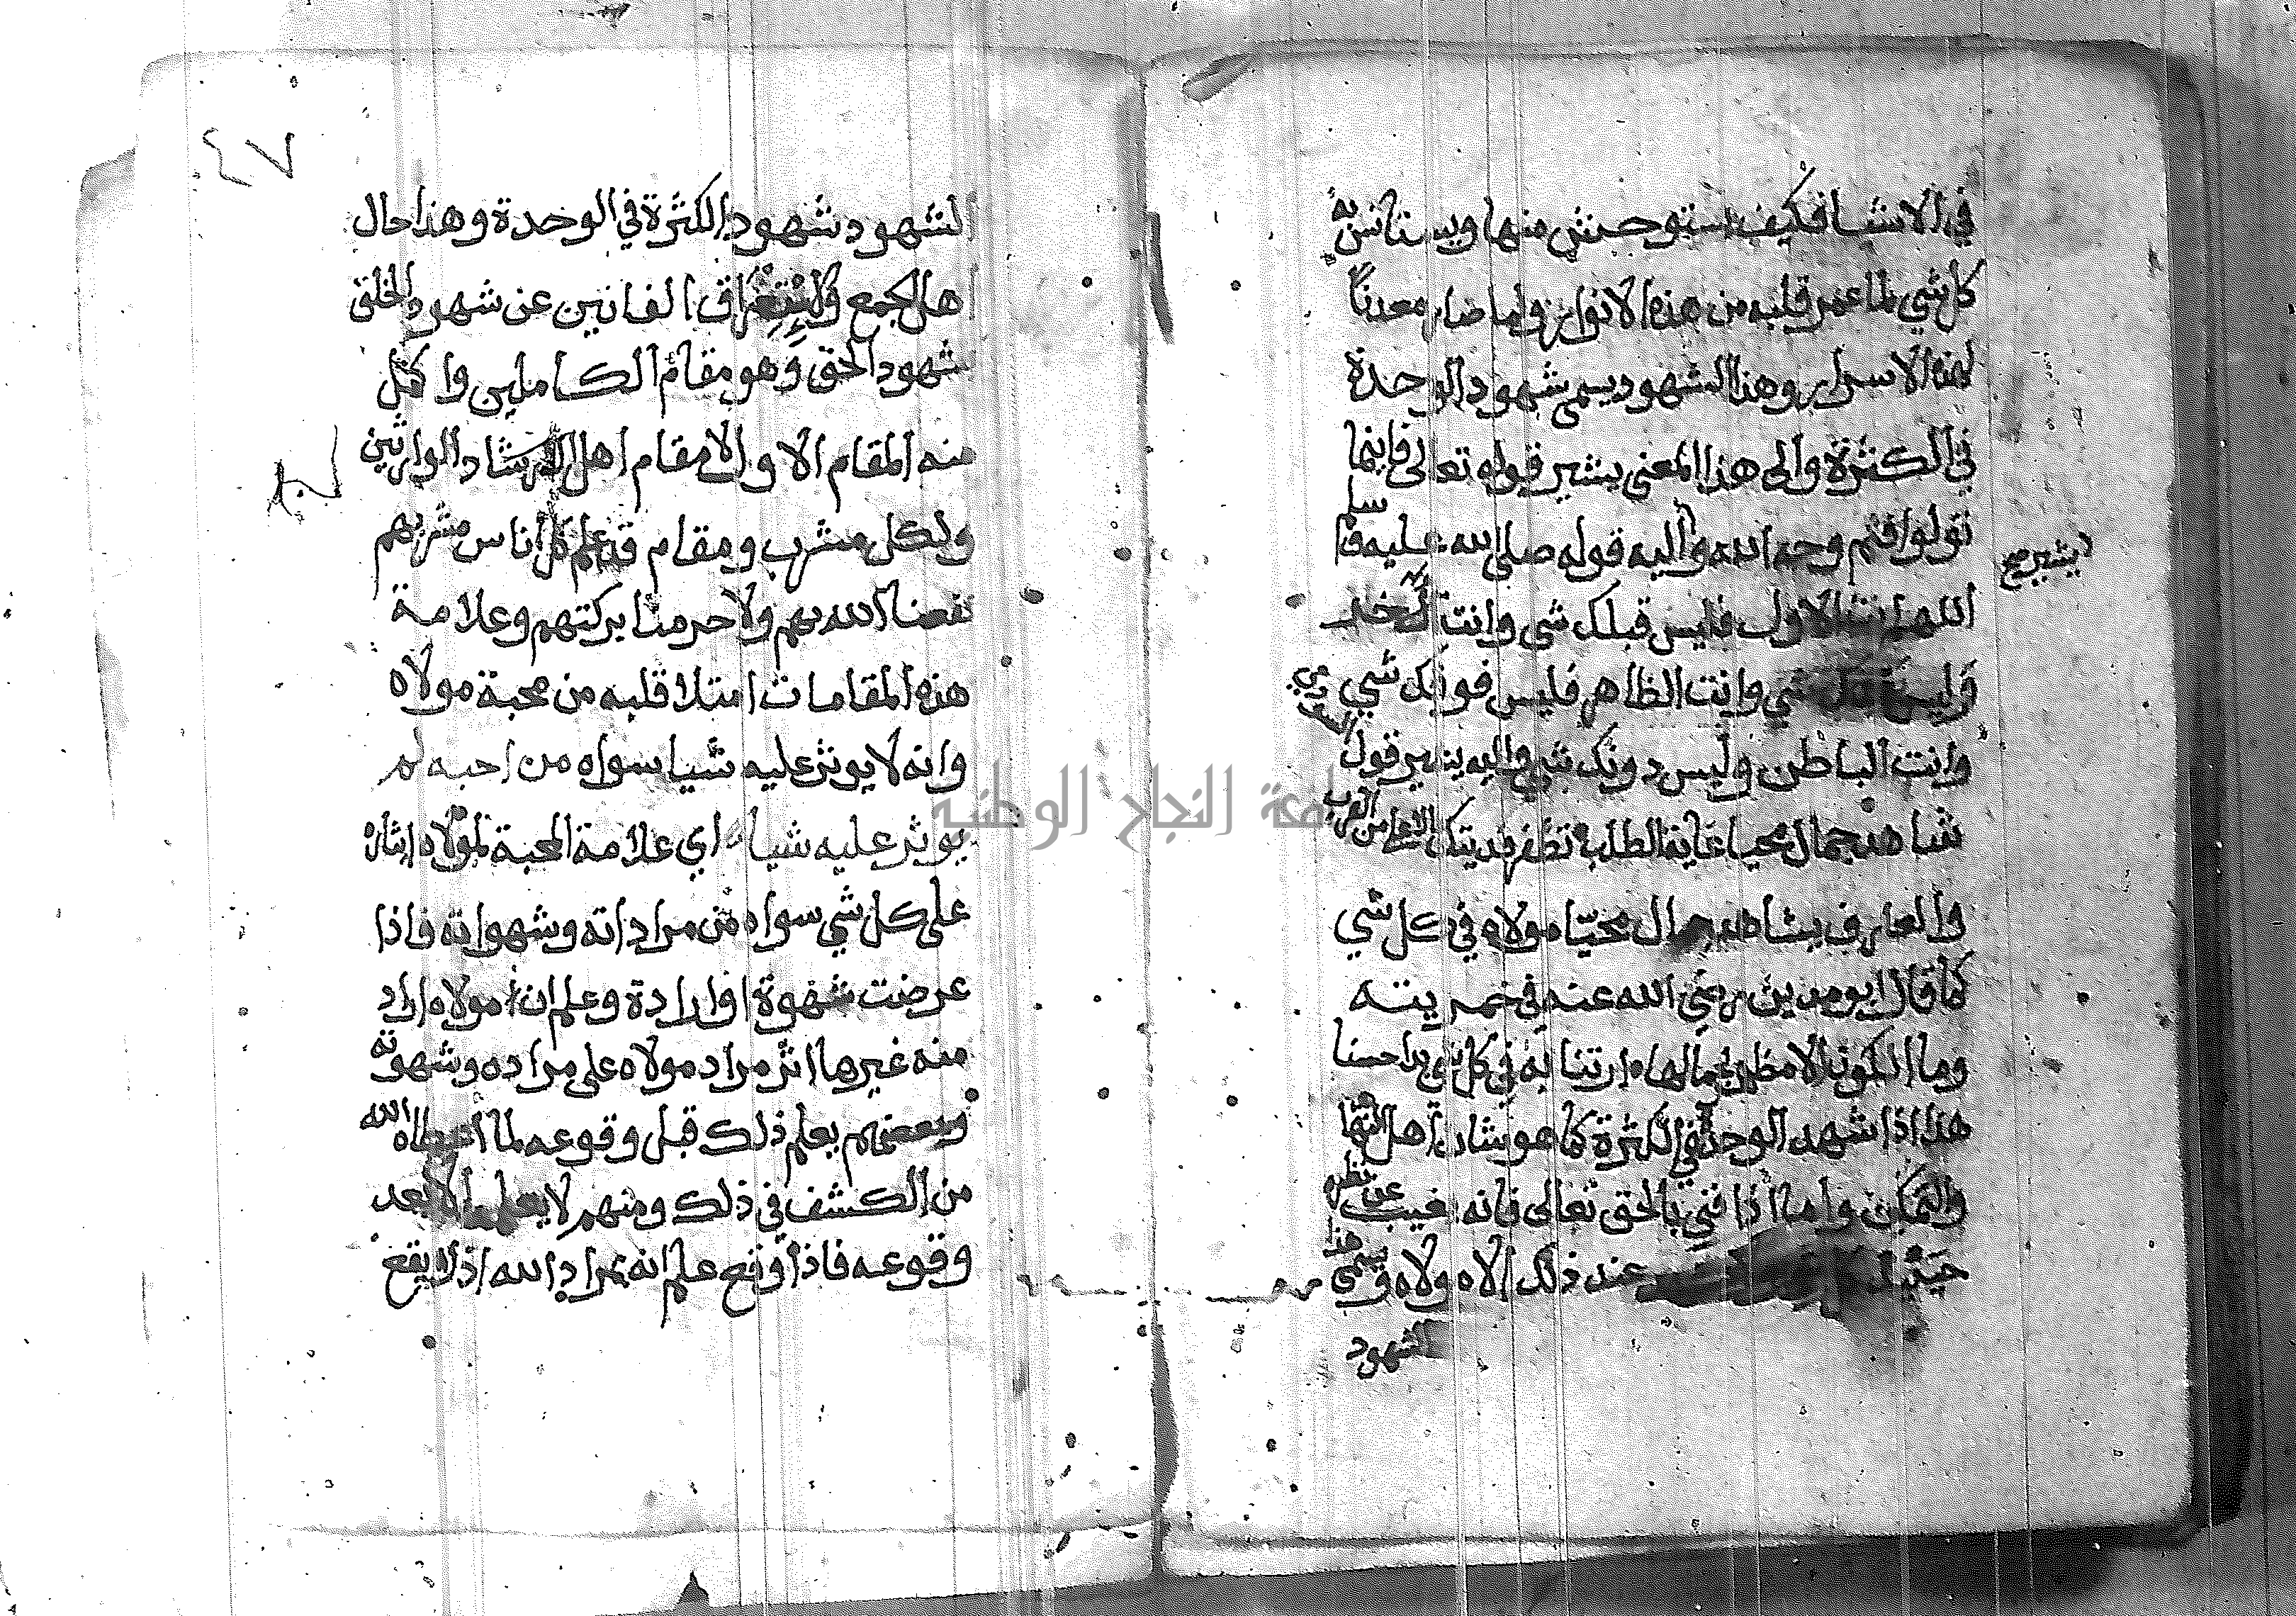 في الاشيا فكيف يستوحش منها ويستانس به
كل شي لما عمر قلبه من هذه الانوار ولما صار معدنًا
لهذه الاسرار وهذا الشهود يسمى شهود الوحدة
في الكثرة والى هذا المعنى يشير قوله تعالى فاينما
تولوا فثم وجه الله واليه قوله صلى الله عليه وسلم
يشير صح
اللهم انت الاول فليس قبلك شي وانت الاخر
فليس بعدك شي وانت الظاهر فليس فوقك شي
وانت الباطن وليس دونك شي واليه يشير قول
شاهد جمال محيا غاية الطلب تظفر بديتك
والعارف يشاهد جمال محيّا مولاه في كل شي
كما قال ابو مدين رضي الله عنه في خمريته
وما الكون الا مظهر لجمالها ارتنا به في كل شي بدا حسنا
هذا اذا شهد الوحدة في الكثرة كما هو شان اهل النها
والتمكين واما اذا فني بالحق تعالى فانه يغيب عن نظره
حينئذ عند ذلك الاه ولاه ويسمى هذا
الشهود
٤٧
الشهود شهود الكثرة في الوحدة وهذا حال
اهل الجمع والاستغراق الفانين عن شهود الخلق
شهود الحق وهو مقام الكاملين واكمل
منه المقام الاول لانه مقام اهل الارشاد الوارثين
ولكل مشرب ومقام قد علم كل اناس مشربهم
نفعنا الله بهم ولا حرمنا بركتهم وعلامة
هذه المقامات امتلا قلبه من محبة مولاه
وانه لا يوثر عليه شيا سواه من احبه لم
يوثر عليه شيا اي علامة المحبة لمولاه ايثاره
على كل شي سواه من مراداته وشهواته فاذا
عرضت شهوة او ارادة وعلم ان مولاه اراد
منه غيرها اثر مراد مولاه على مراده وشهوته
وبعضهم يعلم ذلك قبل وقوعه لما اعطاه الله
من الكشف في ذلك ومنهم لا يعلمه الا بعد
وقوعه فاذا وقع علم انه بمراد الله اذ لا يقع
جامعة النجاح الوطنية